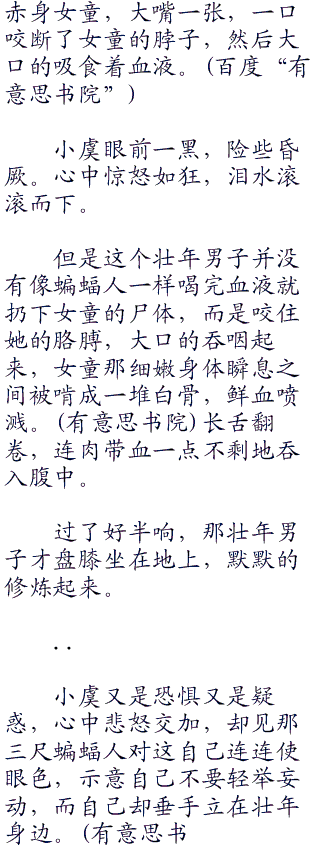 赤身女童，大嘴一张，一口
咬断了女童的脖子，然后大
口的吸食着血液。(百度“有
意思书院”)
小虞眼前一黑，险些昏
厥。心中惊怒如狂，泪水滚
滚而下。
但是这个壮年男子并没
有像蝙蝠人一样喝完血液就
扔下女童的尸体，而是咬住
她的胳膊，大口的吞咽起
来，女童那细嫩身体瞬息之
间被啃成一堆白骨，鲜血喷
溅。(有意思书院)长舌翻
卷，连肉带血一点不剩地吞
入腹中。
过了好半响，那壮年男
子才盘膝坐在地上，默默的
修炼起来。
. .
小虞又是恐惧又是疑
惑，心中悲怒交加，却见那
三尺蝙蝠人对这自己连连使
眼色，示意自己不要轻举妄
动，而自己却垂手立在壮年
身边。(有意思书